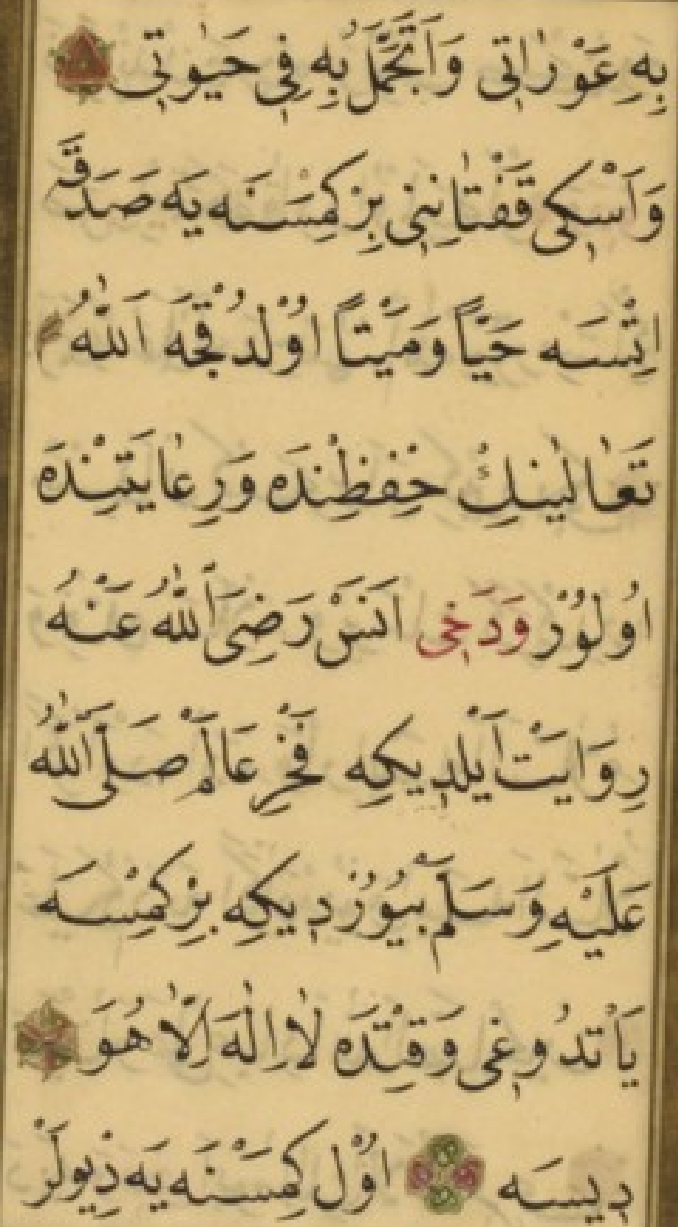 بِهِ عَوْرَاتِى وَاَتَجَمَّلُ بِهِ فِى حَيٰوتِى
وَاَسْكِى قَفْتَانِنِى بِرْ كِمْسَنَه يَه صَدَقَه
اِتْسَه حَيًّا وَمَيْتًا اوُلْدُقْجَه اَللّٰهُ
تَعَالٰينِكْ حِفْظِنْدَه وَرِعَايَتِنْدَه
اوُلوُرْ وَدَخِى اَنَسْ رَضِىَ اللّٰهُ عَنْهُ
رِوَايَتْ اَيْلَدِيكِه فَخْرِ عَالَمْ صَلَّى اللّٰهُ
عَلَيْهِ وَسَلَّمْ بُيوُرْدِيكِه بِرْ كِمْسَه
يَاْتدُوغِى وَقِتْدَه لَا اِلٰهَ اِلَّا هُوَ
دِيسَه اوُلْ كِمْسَنَه يَه دِيوُلَرْ